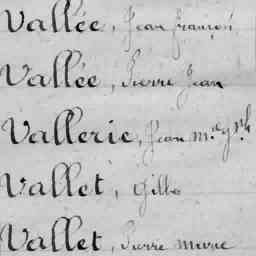 Vallée, Jean françois
Vallée, Pierre Jean
Vallerie, Jean m.e
Vallet, Gilles
Vallet, Pierre marie